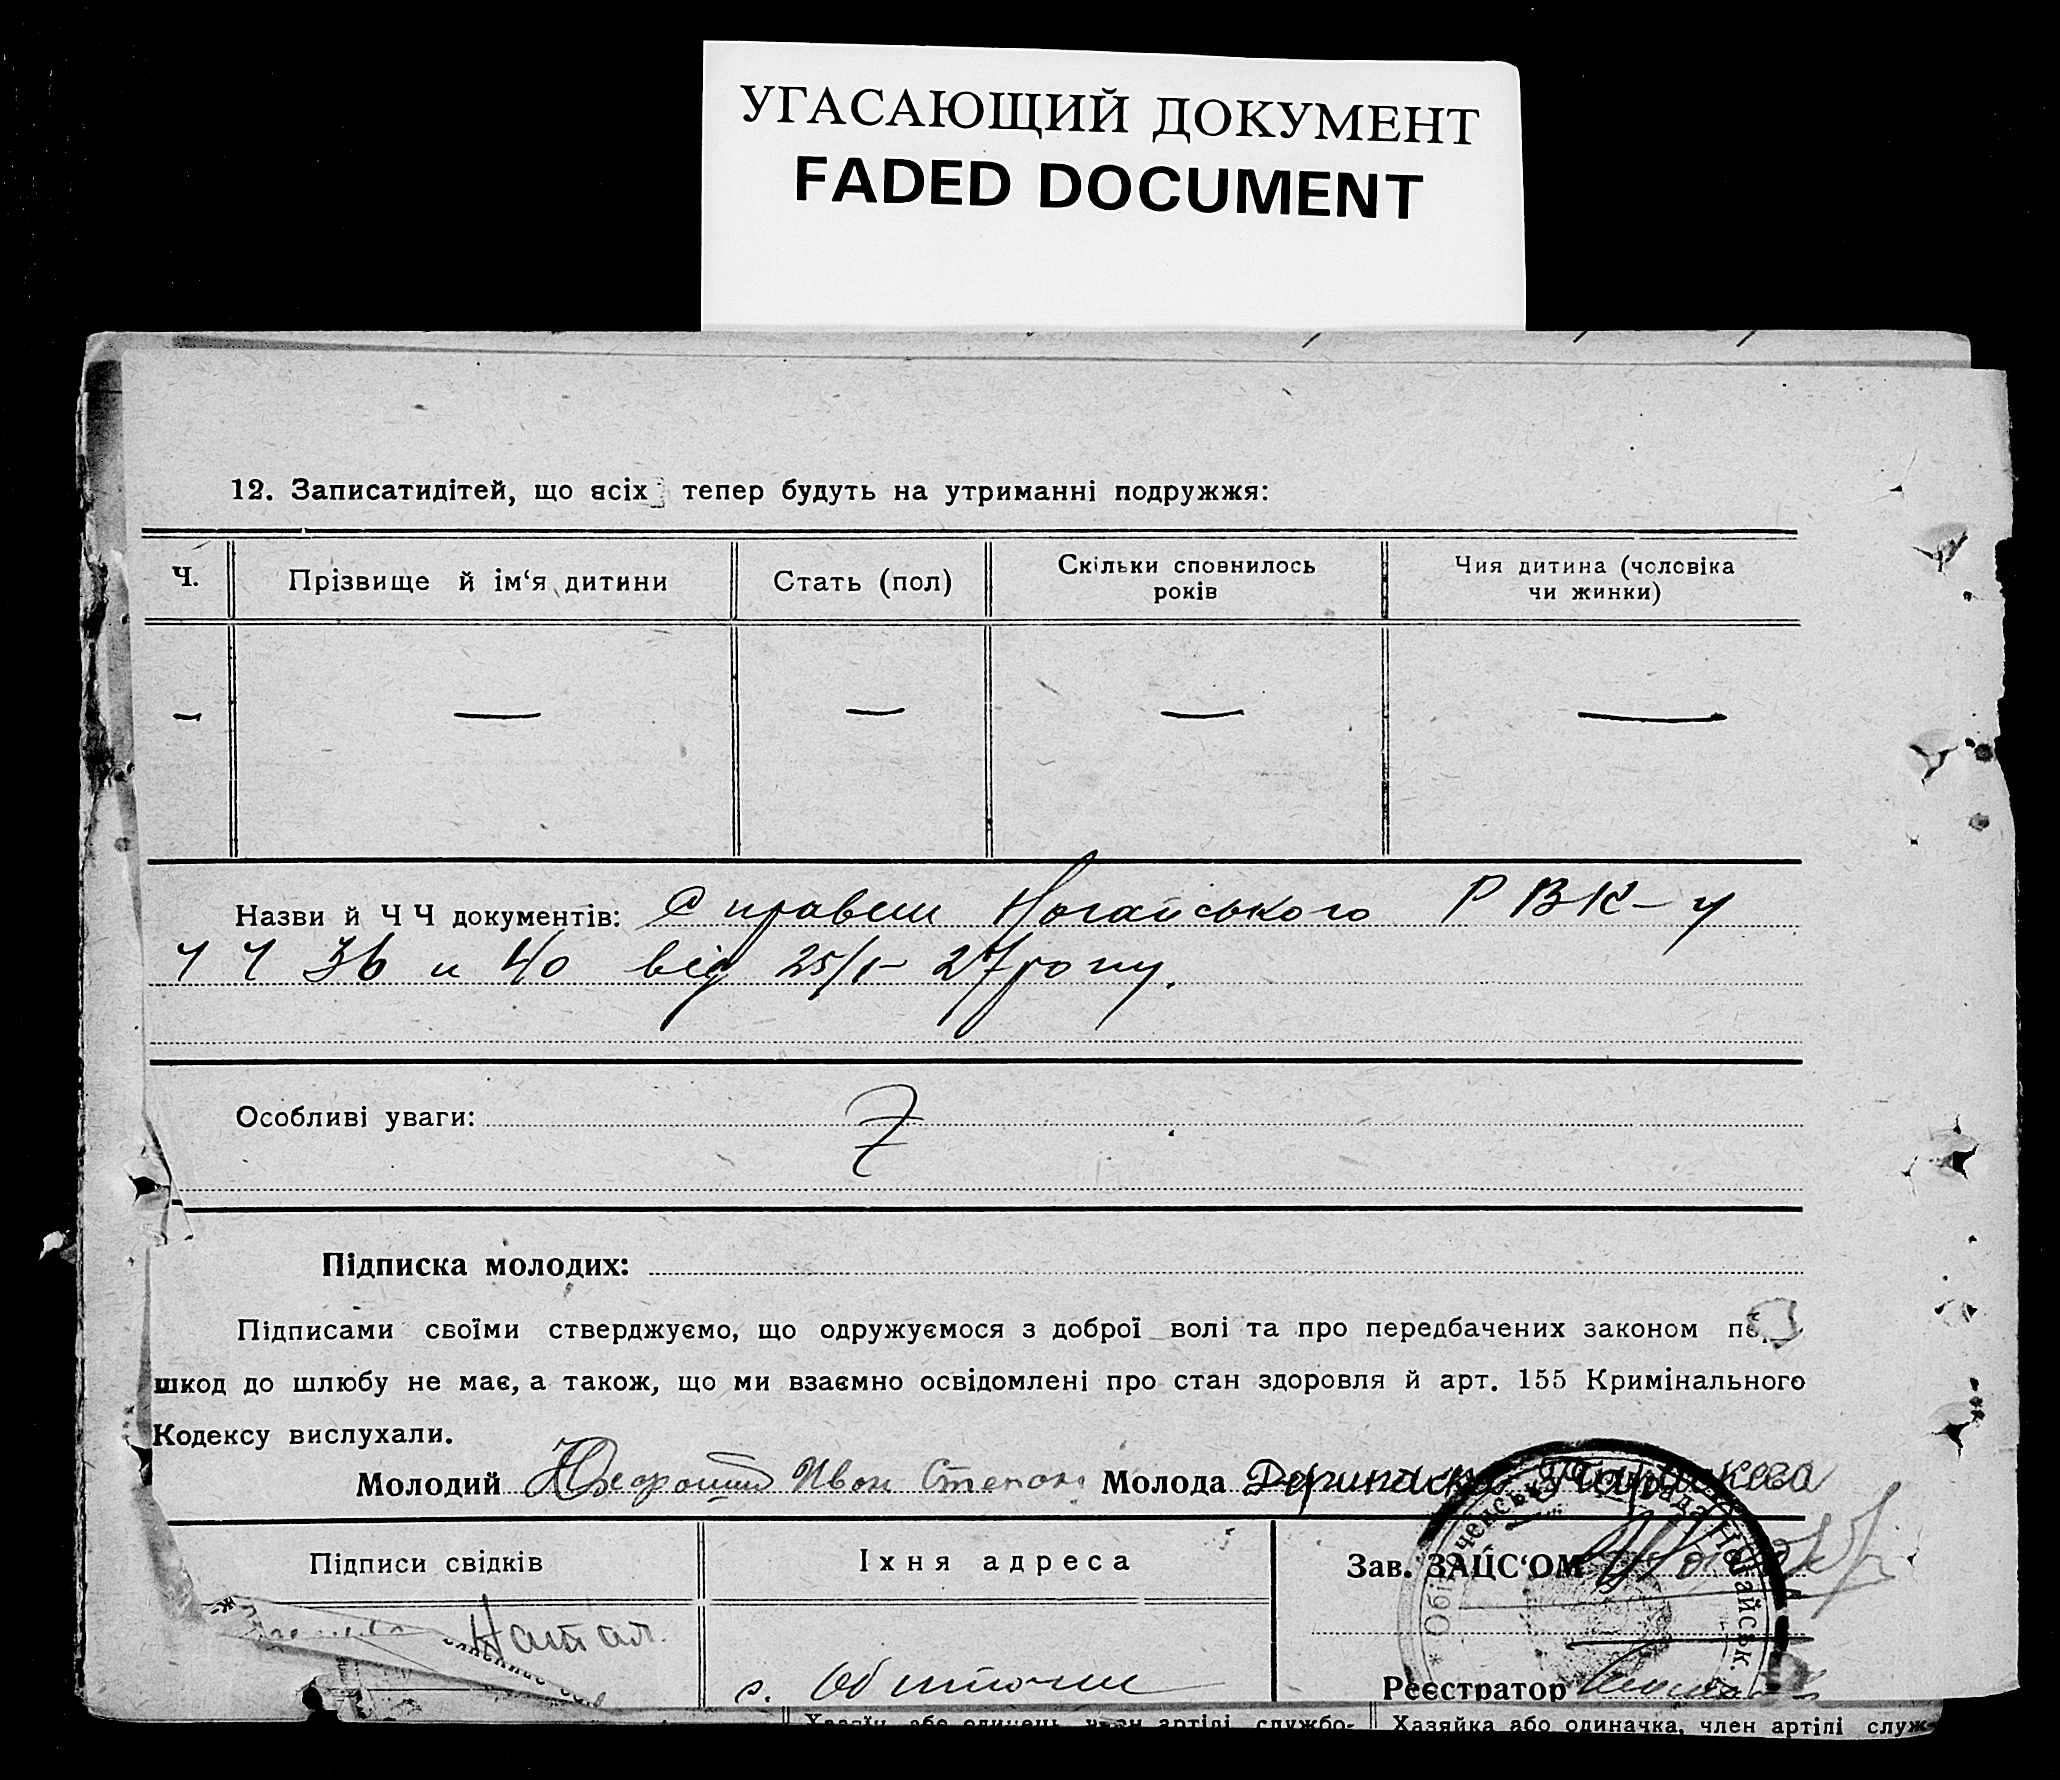 УГАСАЮЩИЙ ДОКУМЕНТ
FADED DOCUMENT
12. Записатидітей, що всіх тепер будуть на утриманні подружжя:
Ч. Прізвище й ім‘я дитини Стать (пол) Скільки сповнилось років Чия дитина (чоловіка чи жинки)
— — — — —
Назви й Ч Ч документів: Справки Ногайського РВК-у
ч ч 36 и 40 від 25/I- 27 року.
Особливі уваги: Z
Підписка молодих:
Підписами своїми стверджуємо, що одружуємося з доброї волі та про передбачених законом пе
шкод до шлюбу не має, а також, що ми взаємно освідомлені про стан здоровля й арт. 155 Кримінального
Кодексу вислухали.
Молодий Иван Степан Молода Параскева
Підписи свідків Їхня адреса Зав. ЗАЦС‘ОМ
Натал.
с. Обиточни Реєстратор
Хазяїн або одинець, член артілі службо- Хазяйка або одиначка, член артілі служ